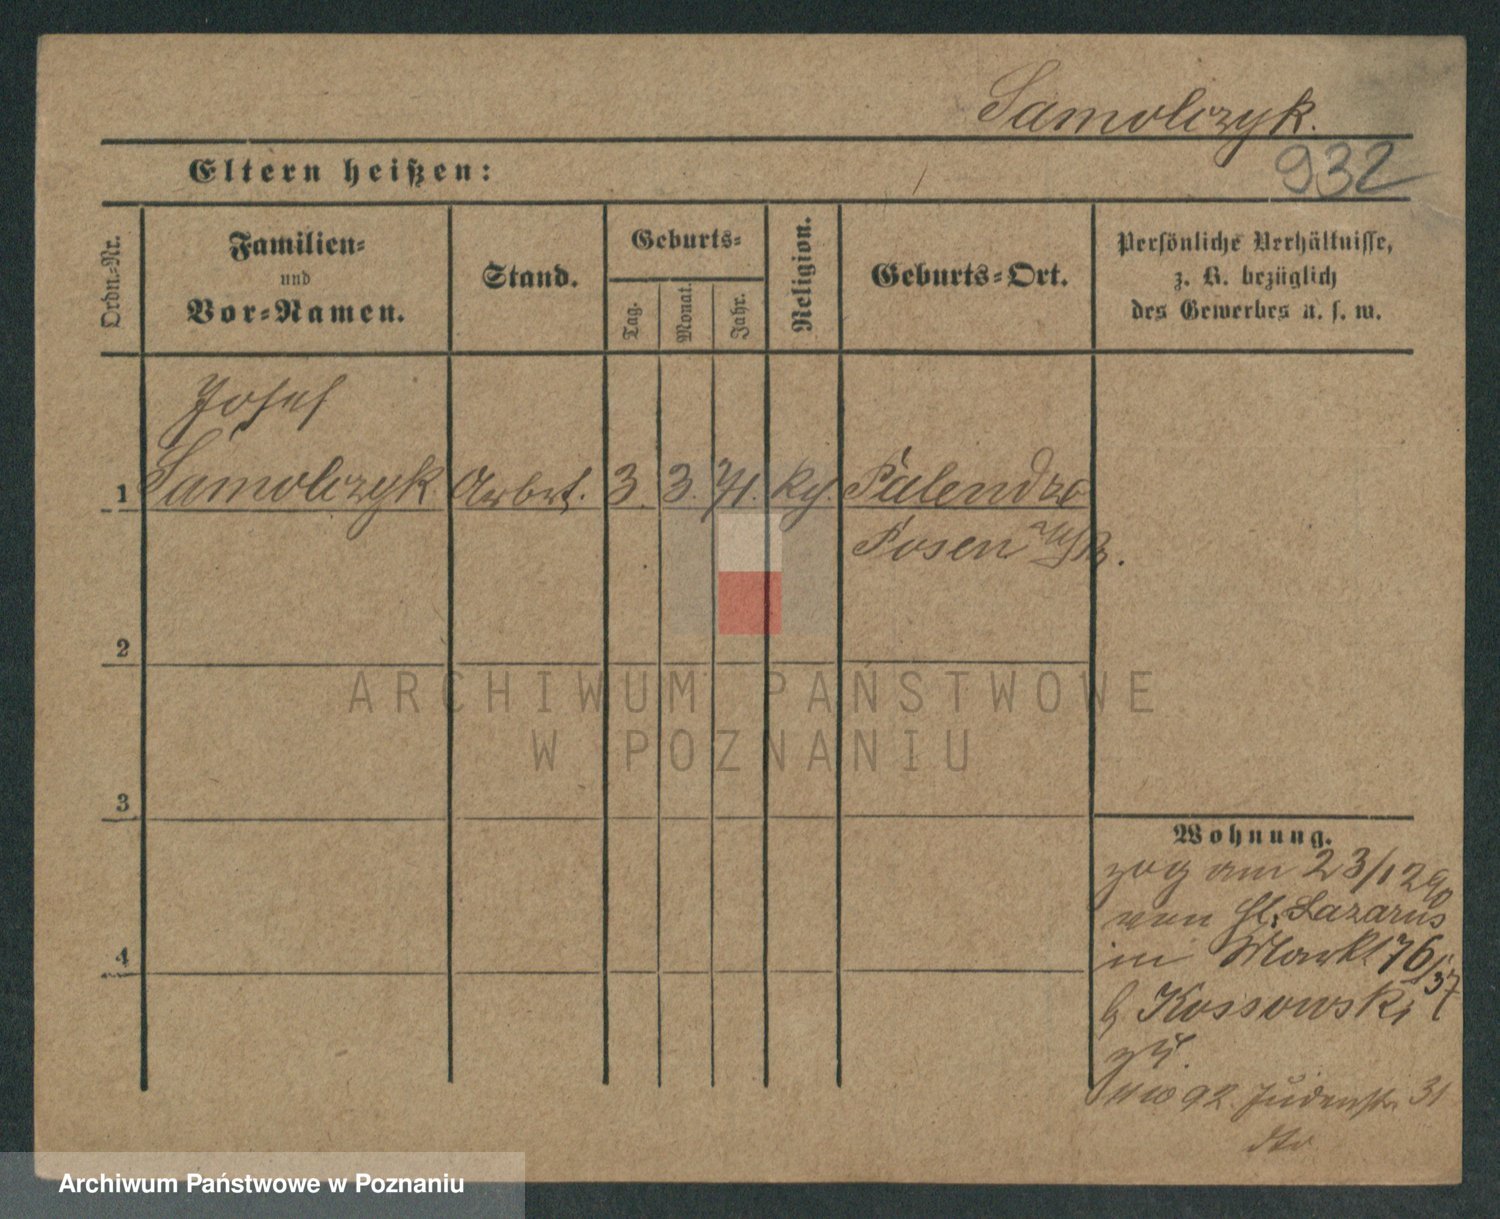 Samolczyk.
932
Eltern heißen:
Ordn.-Nr.
Familien-
und
Vor-Namen.
Stand.
Geburts-
Tag.
Monat.
Jahr.
Religion.
Geburts-Ort.
Persönliche Verhältnisse,
z. B. bezüglich
des Gewerbes u. s. w.
Josef
1 Samolczyk Arbrt. 3. 3. 71. kg. Palendzo
Posen
2
ARCHIWUM PAŃSTWOWE
W POZNANIU
3
Wohnung.
zog am 23/12 90
von St. Lazarus
in Markt 76/37
b Kossowski
zu.
11 10 92 Judenstr. 31
dto
4
Archiwum Państwowe w Poznaniu